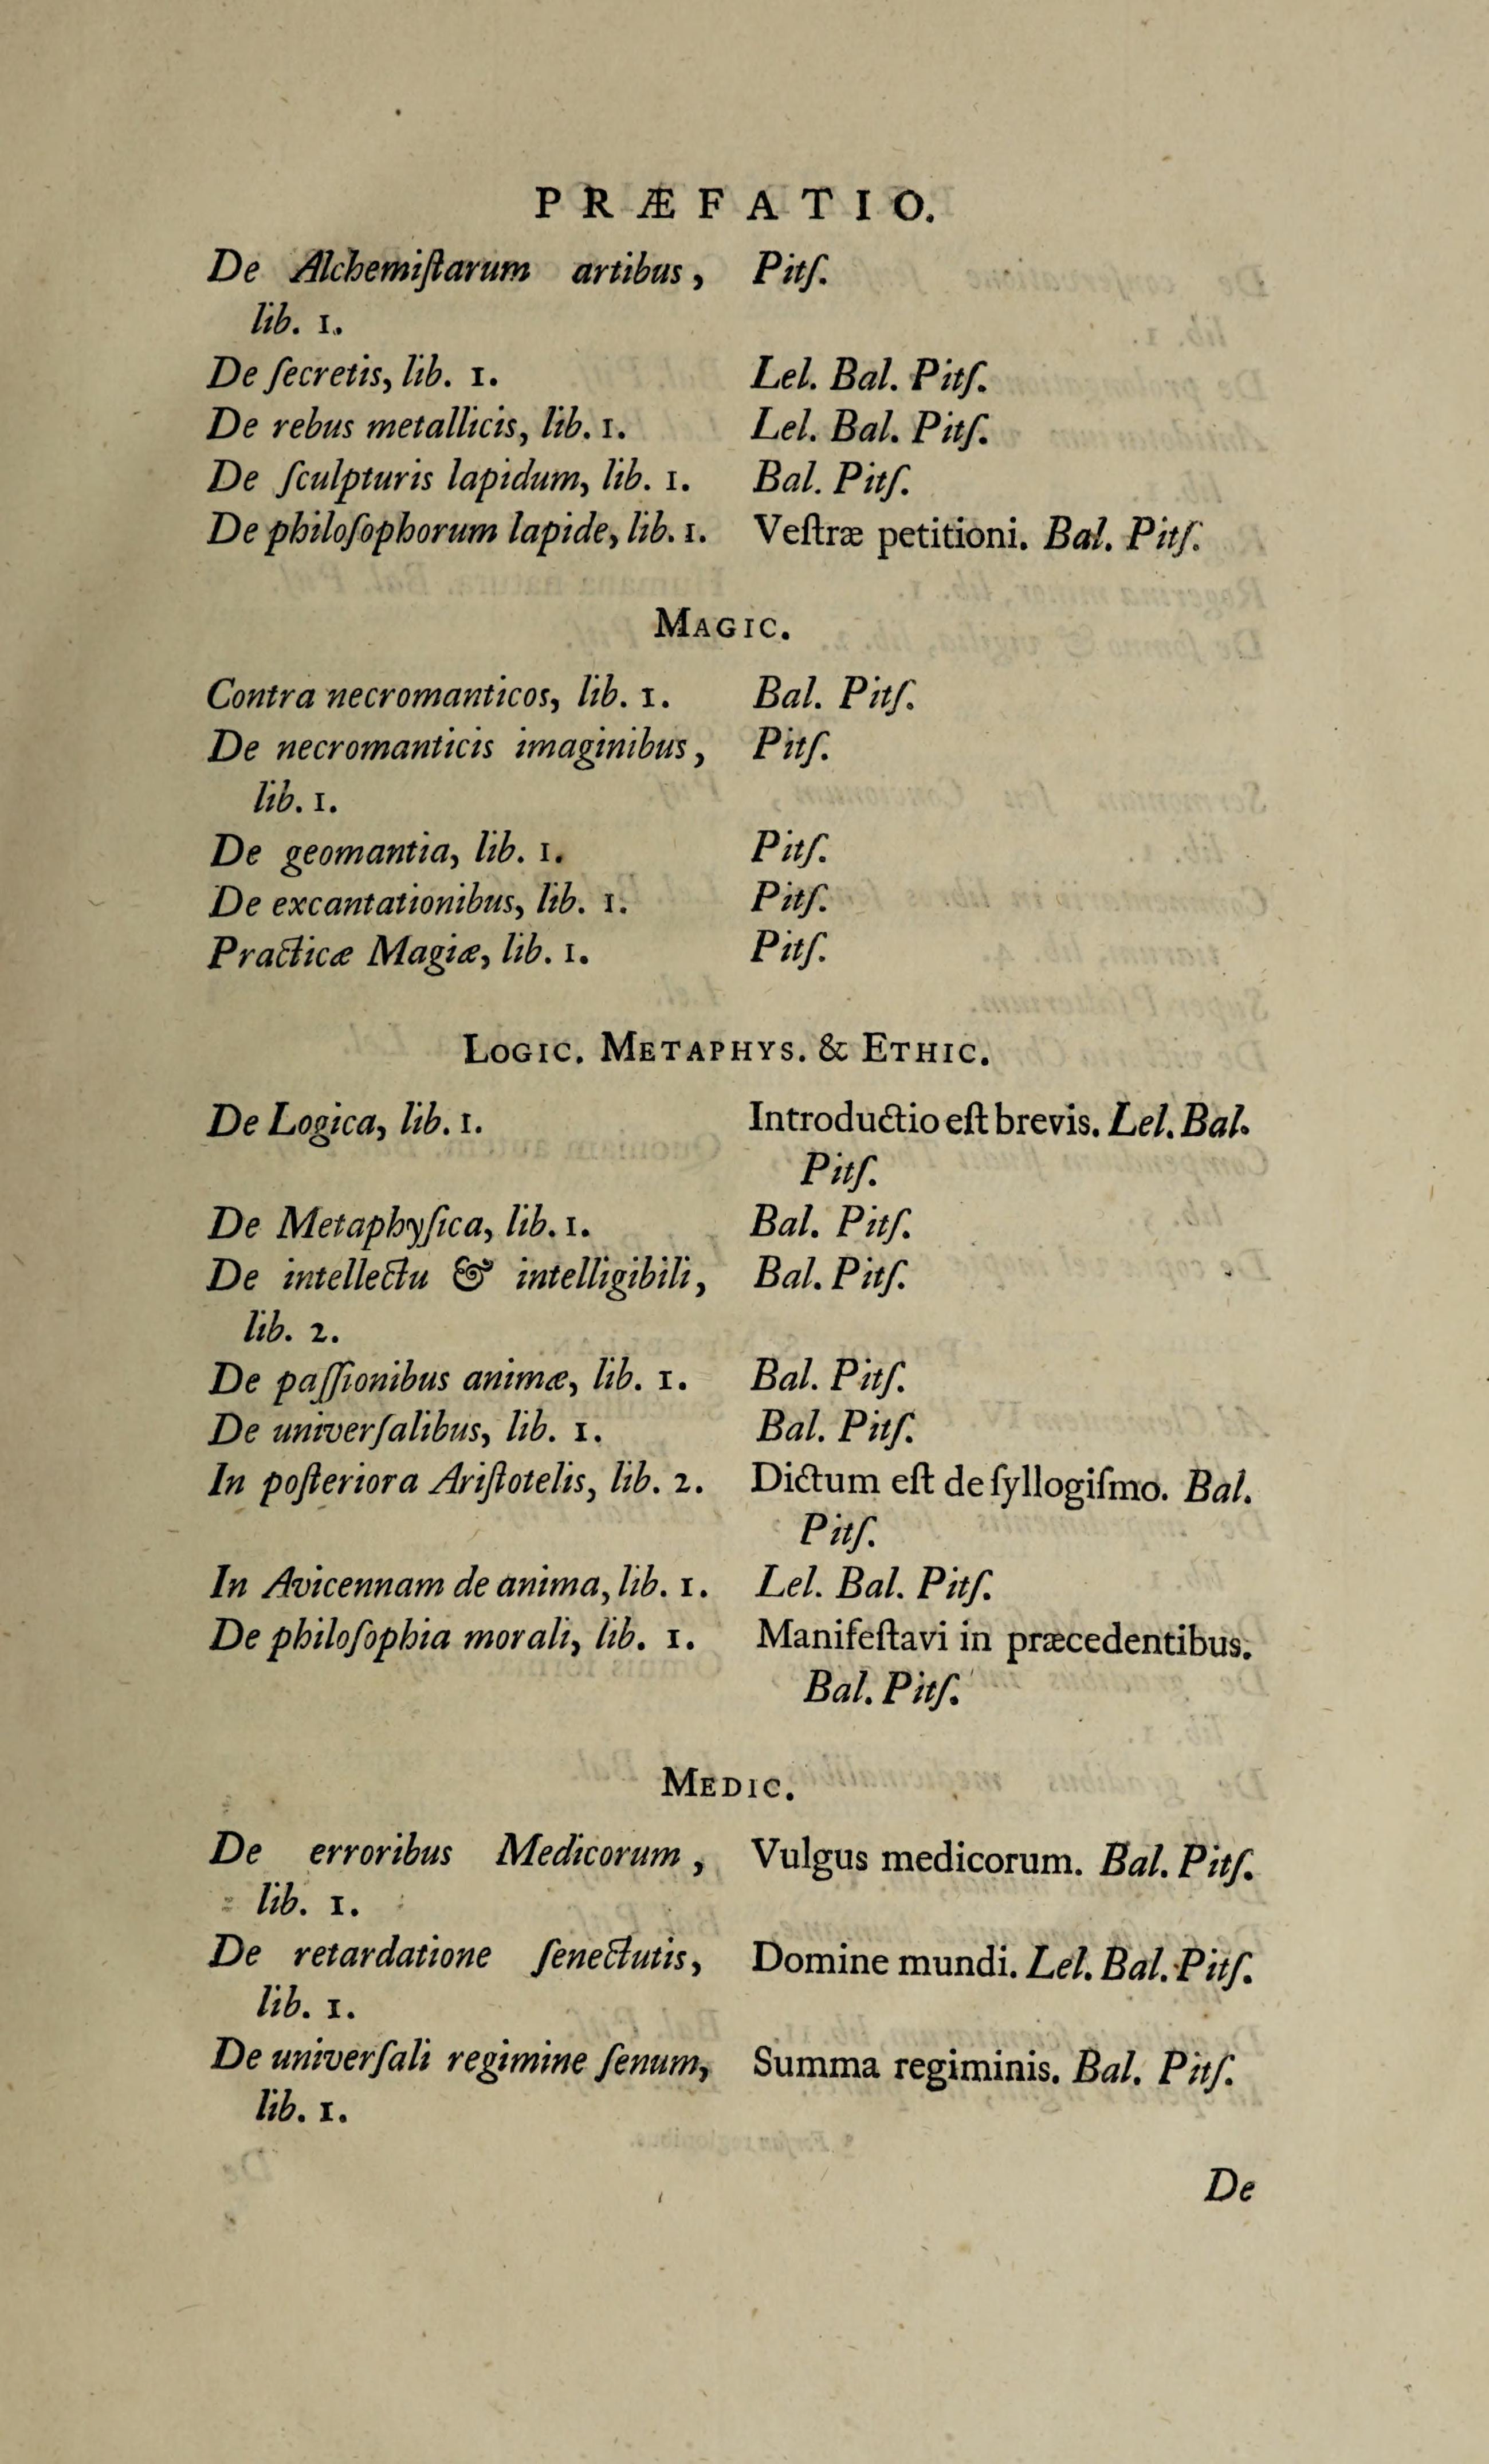 PRÆFATIO.
De Alchemiſtarum artibus, Pitſ.
lib. 1.
De ſecretis, lib. 1. Lel. Bal. Pitſ.
De rebus metallicis, lib. 1. Lel. Bal. Pitſ.
De ſculpturis lapidum, lib. 1. Bal. Pitſ.
De philoſophorum lapide, lib. 1. Veſtræ petitioni. Bal. Pitſ.
MAGIC.
Contra necromanticos, lib. 1. Bal. Pitſ.
De necromanticis imaginibus, Pitſ.
lib. 1.
De geomantia, lib. 1. Pitſ.
De excantationibus, lib. 1. Pitſ.
Practicæ Magiæ, lib. 1. Pitſ.
LOGIC. METAPHYS. & ETHIC.
De Logica, lib. 1. Introductio eſt brevis. Lel. Bal.
Pitſ.
De Metaphyſica, lib. 1. Bal. Pitſ.
De intellectu & intelligibili, Bal. Pitſ.
lib. 2.
De paſſionibus animæ, lib. 1. Bal. Pitſ.
De univerſalibus, lib. 1. Bal. Pitſ.
In poſteriora Ariſtotelis, lib. 2. Dictum eſt de ſyllogiſmo. Bal.
Pitſ.
In Avicennam de anima, lib. 1. Lel. Bal. Pitſ.
De philoſophia morali, lib. 1. Manifeſtavi in præcedentibus.
Bal. Pitſ.
MEDIC.
De erroribus Medicorum, Vulgus medicorum. Bal. Pitſ.
lib. 1.
De retardatione ſenectutis, Domine mundi. Lel. Bal. Pitſ.
lib. 1.
De univerſali regimine ſenum, Summa regiminis. Bal. Pitſ.
lib. 1.
De